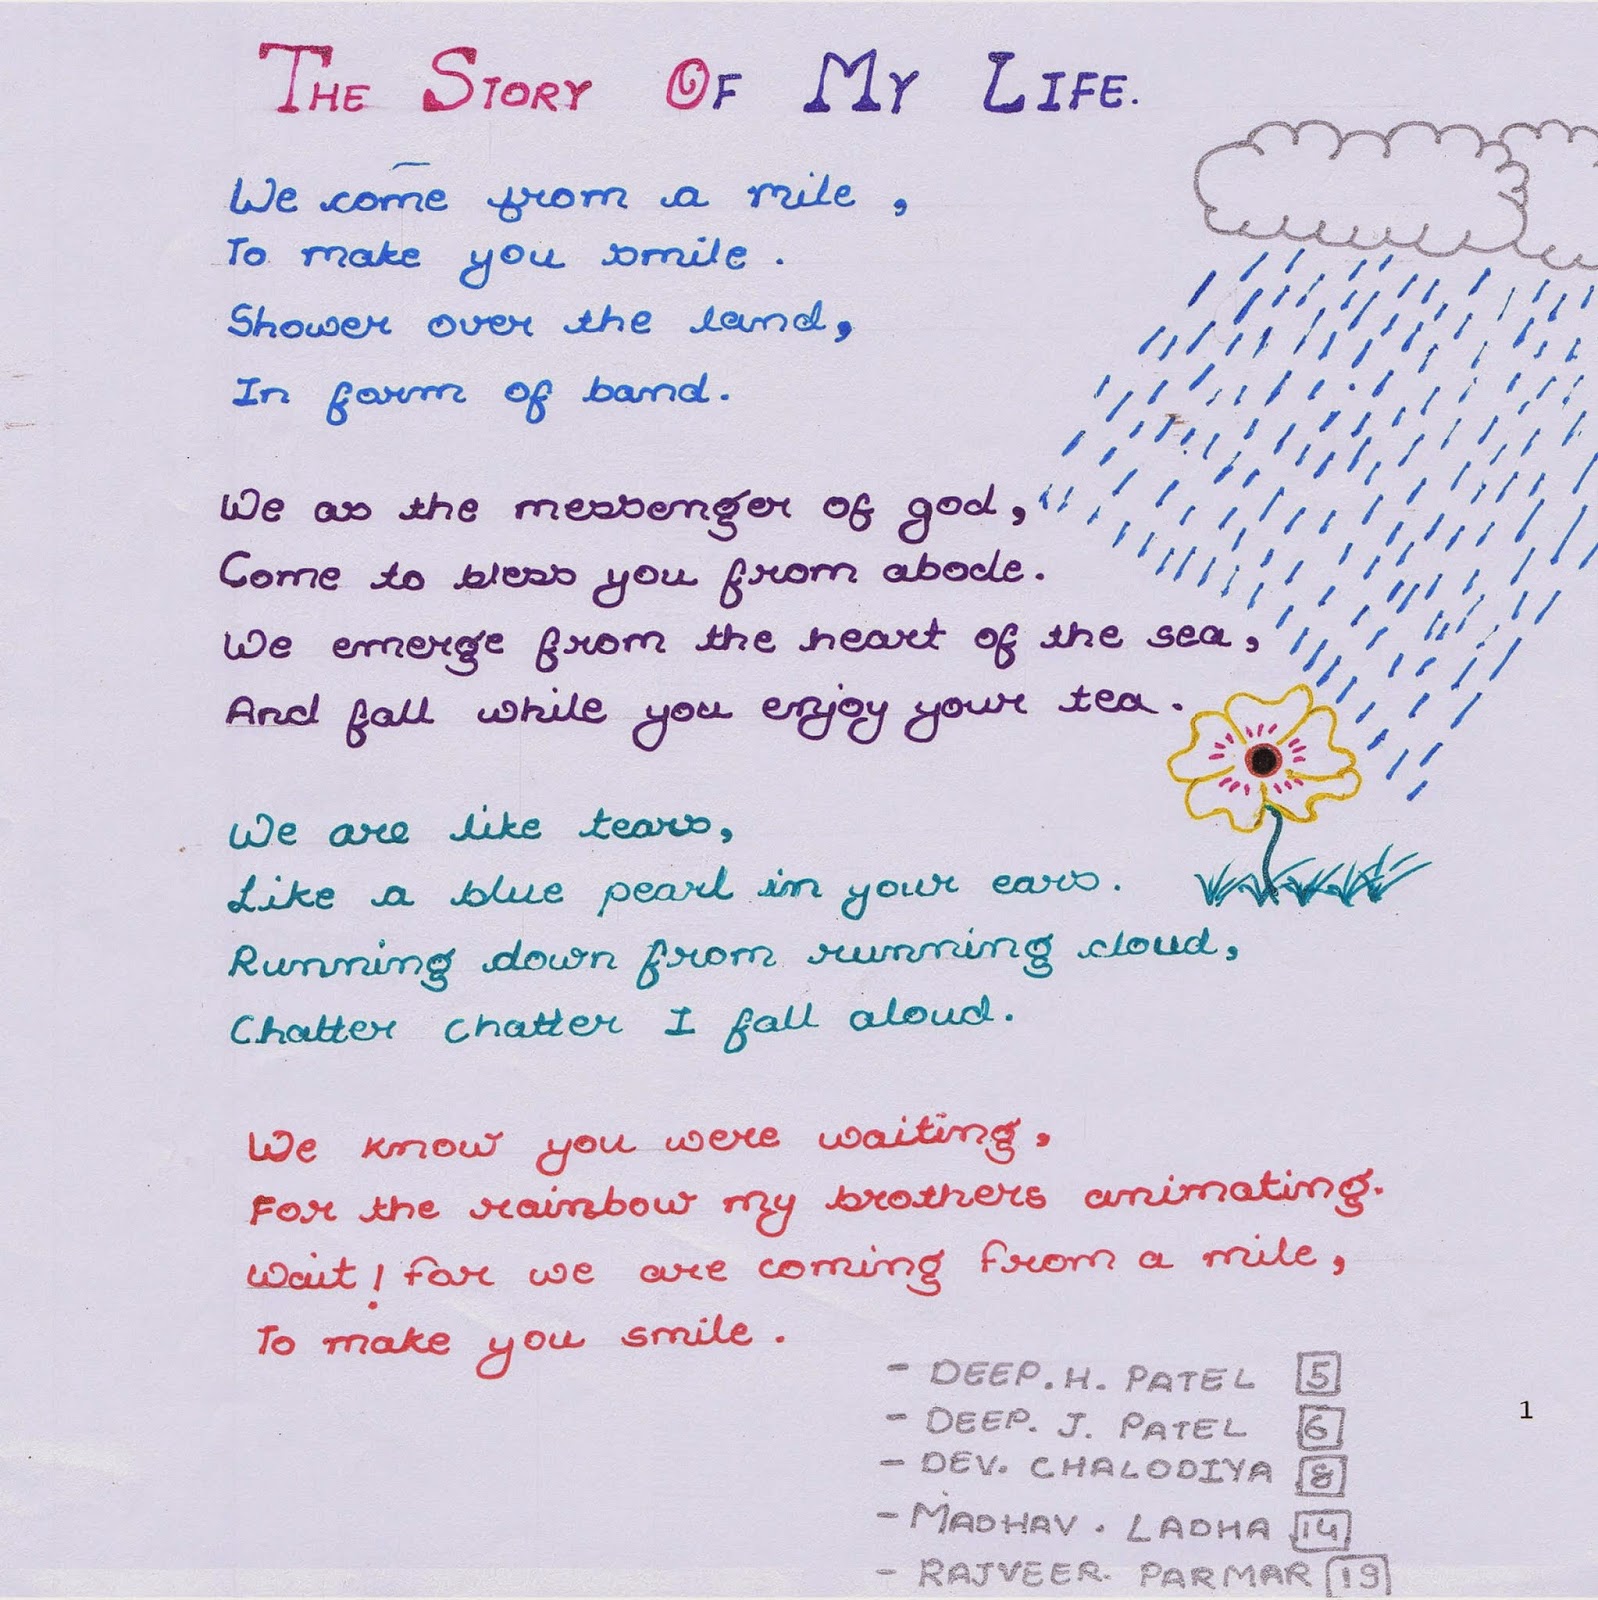 THE STORY OF MY LIFE.
We come from a mile,
To make you smile.
Shower over the land,
In form of band.
We as the messenger of god,
Come to bless you from abode.
We emerge from the heart of the sea,
And fall while you enjoy your tea.
We are like tears,
Like a blue pearl in your ears.
Running down from running cloud,
Chatter chatter I fall aloud.
We know you were waiting,
For the rainbow my brothers animating.
Wait! For we are coming from a mile,
To make you smile.
- DEEP. H. PATEL 5
- DEEP. J. PATEL 6
- DEV. CHALODIYA 8
- MADHAV. LADHA 14
- RAJVEER. PARMAR 19
1